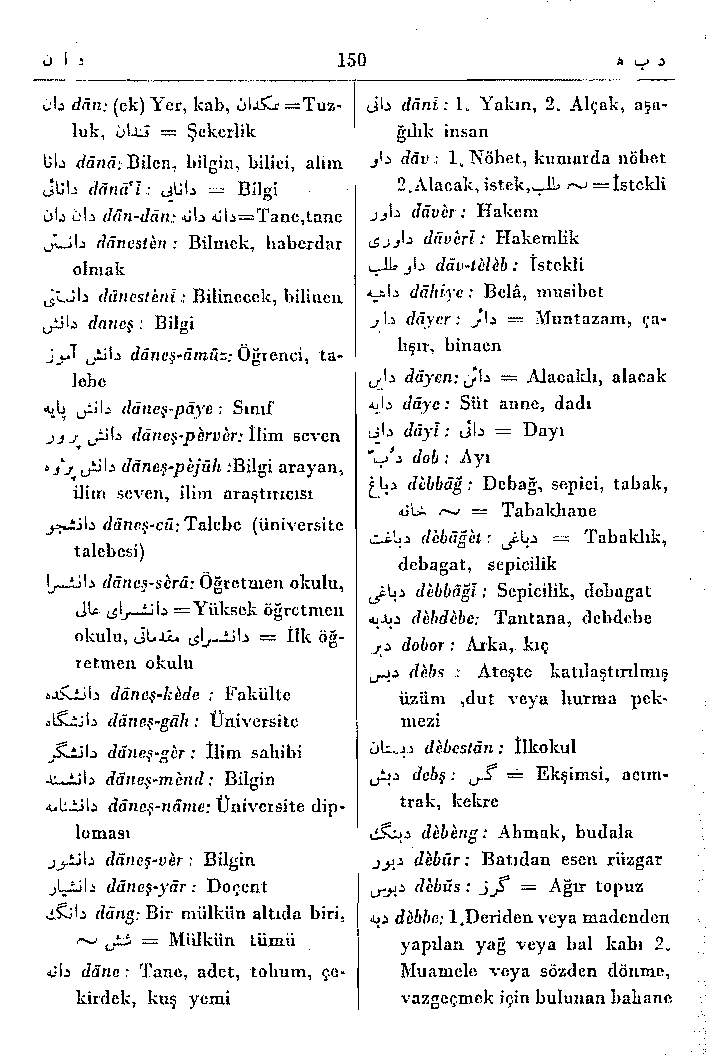 د ا ن
150
د ب ه
دان dān: (ek) Yer, kab, نمکدان =Tuz-
luk, قندان = Şekerlik
دانا dānā: Bilen, bilgin, bilici, alim
دانائی dānā'ī : دانایی = Bilgi
دان دان dān-dān: دانه دانه=Tane,tane
دانستن dānestèn : Bilmek, haberdar
olmak
دانستنی dānestènī : Bilinecek, bilinen
دانش daneş : Bilgi
دانش آموز dāneş-āmūz: Öğrenci, ta-
lebe
دانش پایه dāneş-pāye : Sınıf
دانش پرور dāneş-pèrvèr: İlim seven
دانش پژوه dāneş-pèjūh :Bilgi arayan,
ilim seven, ilim araştırıcısı
دانشجو dāneş-cū: Talebe (üniversite
talebesi)
دانشسرا dāneş-sèrā: Öğretmen okulu,
دانشسرای عالی =Yüksek öğretmen
okulu, دانشسرای مقدماتی = İlk öğ-
retmen okulu
دانشکده dāneş-kède : Fakülte
دانشگاه dāneş-gāh : Üniversite
دانشگر dāneş-gèr : İlim sahibi
دانشمند dāneş-mènd : Bilgin
دانشنامه dāneş-nāme: Üniversite dip-
loması
دانشور dāneş-vèr : Bilgin
دانشیار dāneş-yār : Doçent
دانگ dāng: Bir mülkün altıda biri,
شش ~ = Mülkün tümü
دانه dāne : Tane, adet, tohum, çe-
kirdek, kuş yemi
دانی dānī : 1. Yakın, 2. Alçak, aşa-
ğılık insan
داو dāv : 1. Nöbet, kumarda nöbet
2.Alacak, istek, ~ طلب =İstekli
داور dāvèr : Hakem
داوری dāvèrī : Hakemlik
داو طلب dāv-tèlèb : İstekli
داهیه dāhiye : Belâ, musibet
دایر dāyer : دائر = Muntazam, ça-
lışır, binaen
داین dāyen: دائن = Alacaklı, alacak
دایه dāye : Süt anne, dadı
دایی dāyī : دائی = Dayı
دب dob : Ayı
دباغ dèbbāğ : Debağ, sepici, tabak,
~ خانه = Tabakhane
دباغت dèbāğèt : دباغی = Tabaklık,
debagat, sepicilik
دباغی dèbbāğī : Sepicilik, debagat
دبدبه dèbdèbe: Tantana, debdebe
دبر dobor : Arka, kıç
دبس dèbs : Ateşte katılaştırılmış
üzüm ,dut veya hurma pek-
mezi
دبستان dèbestān : İlkokul
دبش debş : گس = Ekşimsi, acım-
trak, kekre
دبنگ dèbèng : Ahmak, budala
دبور dèbūr : Batıdan esen rüzgar
دبوس dèbūs : گرز = Ağır topuz
دبه dèbbe: 1.Deriden veya madenden
yapılan yağ veya bal kabı 2.
Muamele veya sözden dönme,
vazgeçmek için bulunan bahane